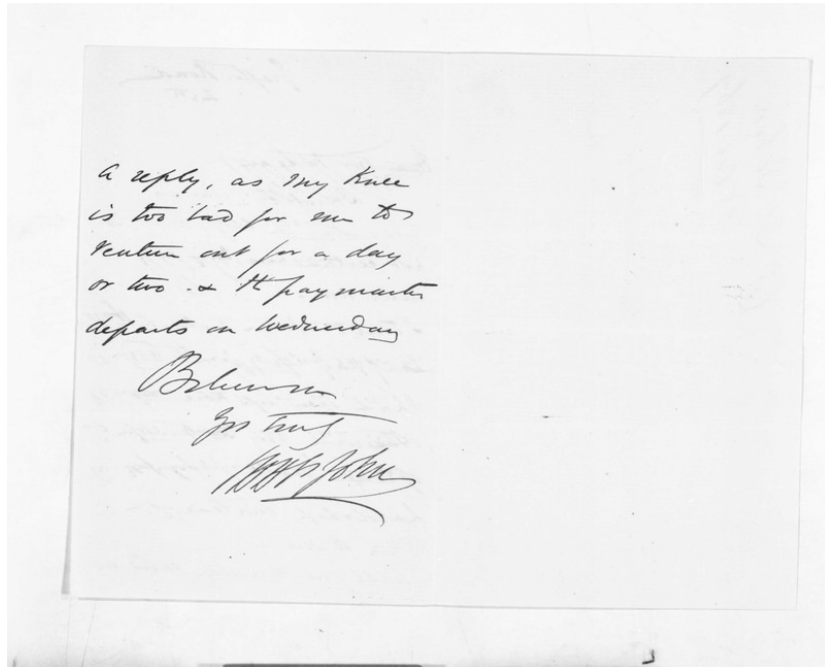 a reply, as my Knee
is too bad for me to
venture out for a day
or two. & the paymaster
departs on Wednesday
Believe me
Yrs truly
St John